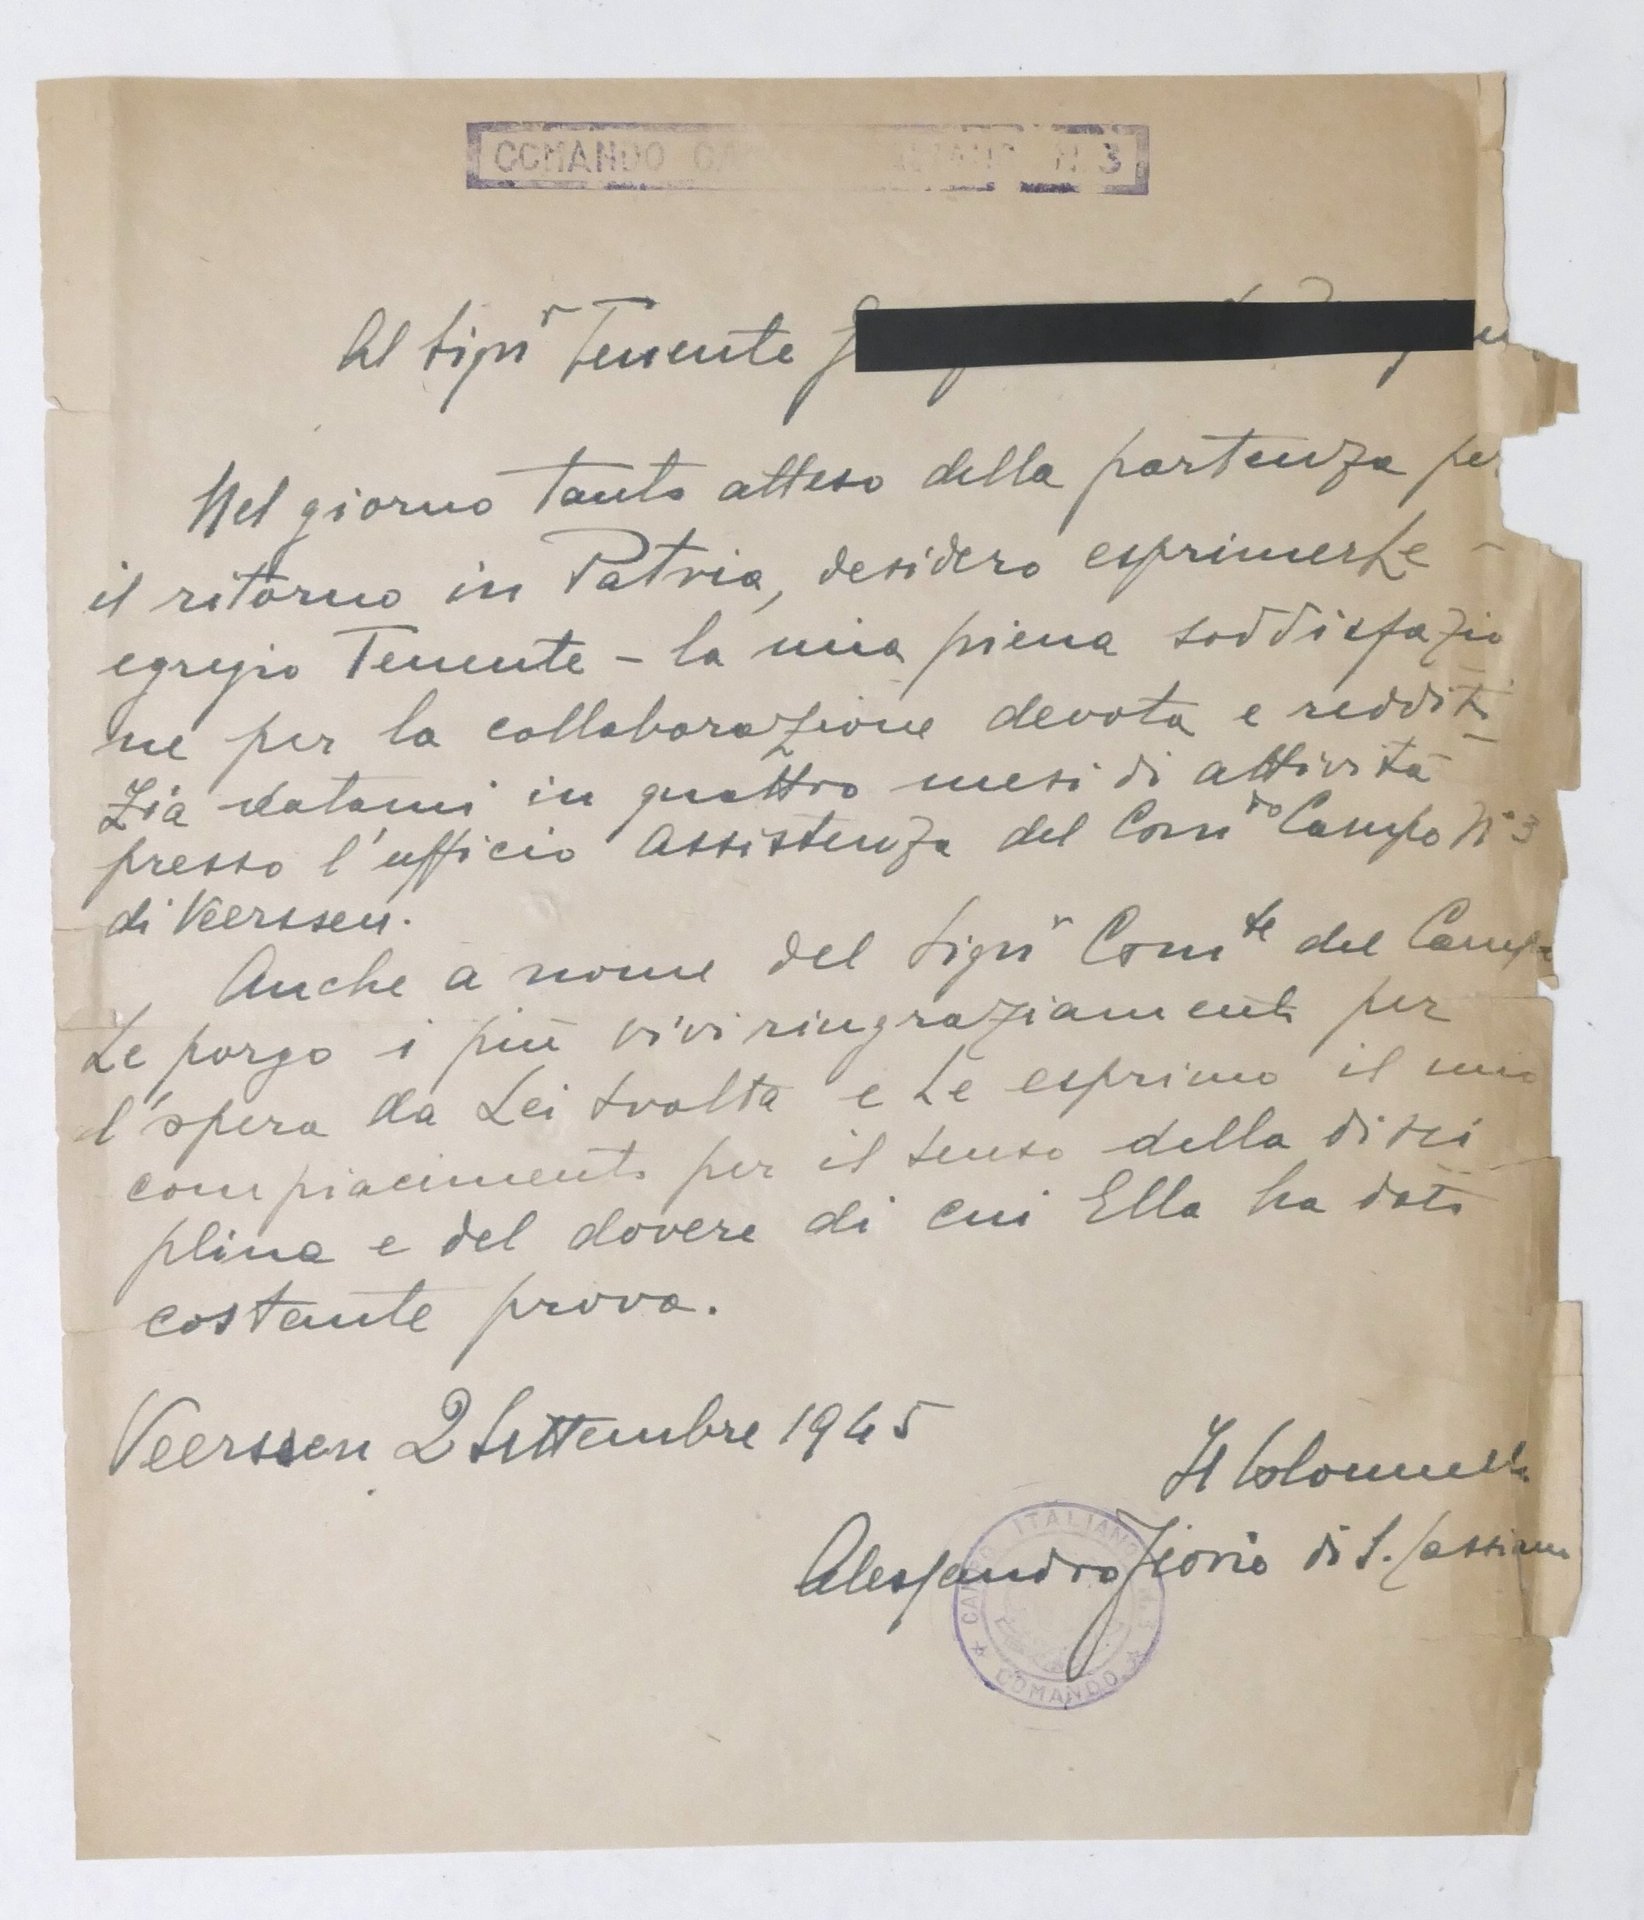 COMANDO N. 3
Al Sigr Tenente
Nel giorno tanto atteso della partenza per
il ritorno in Patria, desidero esprimerLe -
egregio Tenente - la mia piena soddisfazio
ne per la collaborazione devota e redditi
zia datami in quattro mesi di attività
presso l'ufficio Assistenza del Comdo Campo N° 3
di Veerssen.
Anche a nome del Sigr Comte del Campo
Le porgo i più vivi ringraziamenti per
l'opera da Lei svolta e Le esprimo il mio
compiacimento per il senso della disci
plina e del dovere di cui Ella ha dato
costante prova.
Veerssen 2 Settembre 1945
Il Colonnello
Alessandro di S. Cassiano
CAMPO ITALIANO N. 3
* COMANDO *